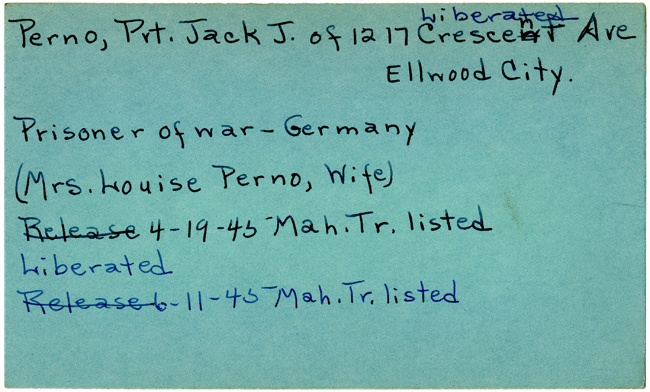 Liberated
Perno, Pvt. Jack J. of 1217 Crescent Ave
Ellwood City.
Prisoner of war - Germany
(Mrs. Louise Perno, Wife)
Release 4-19-45 - Mah. Tr. listed
Liberated
Release 6-11-45 - Mah. Tr. listed